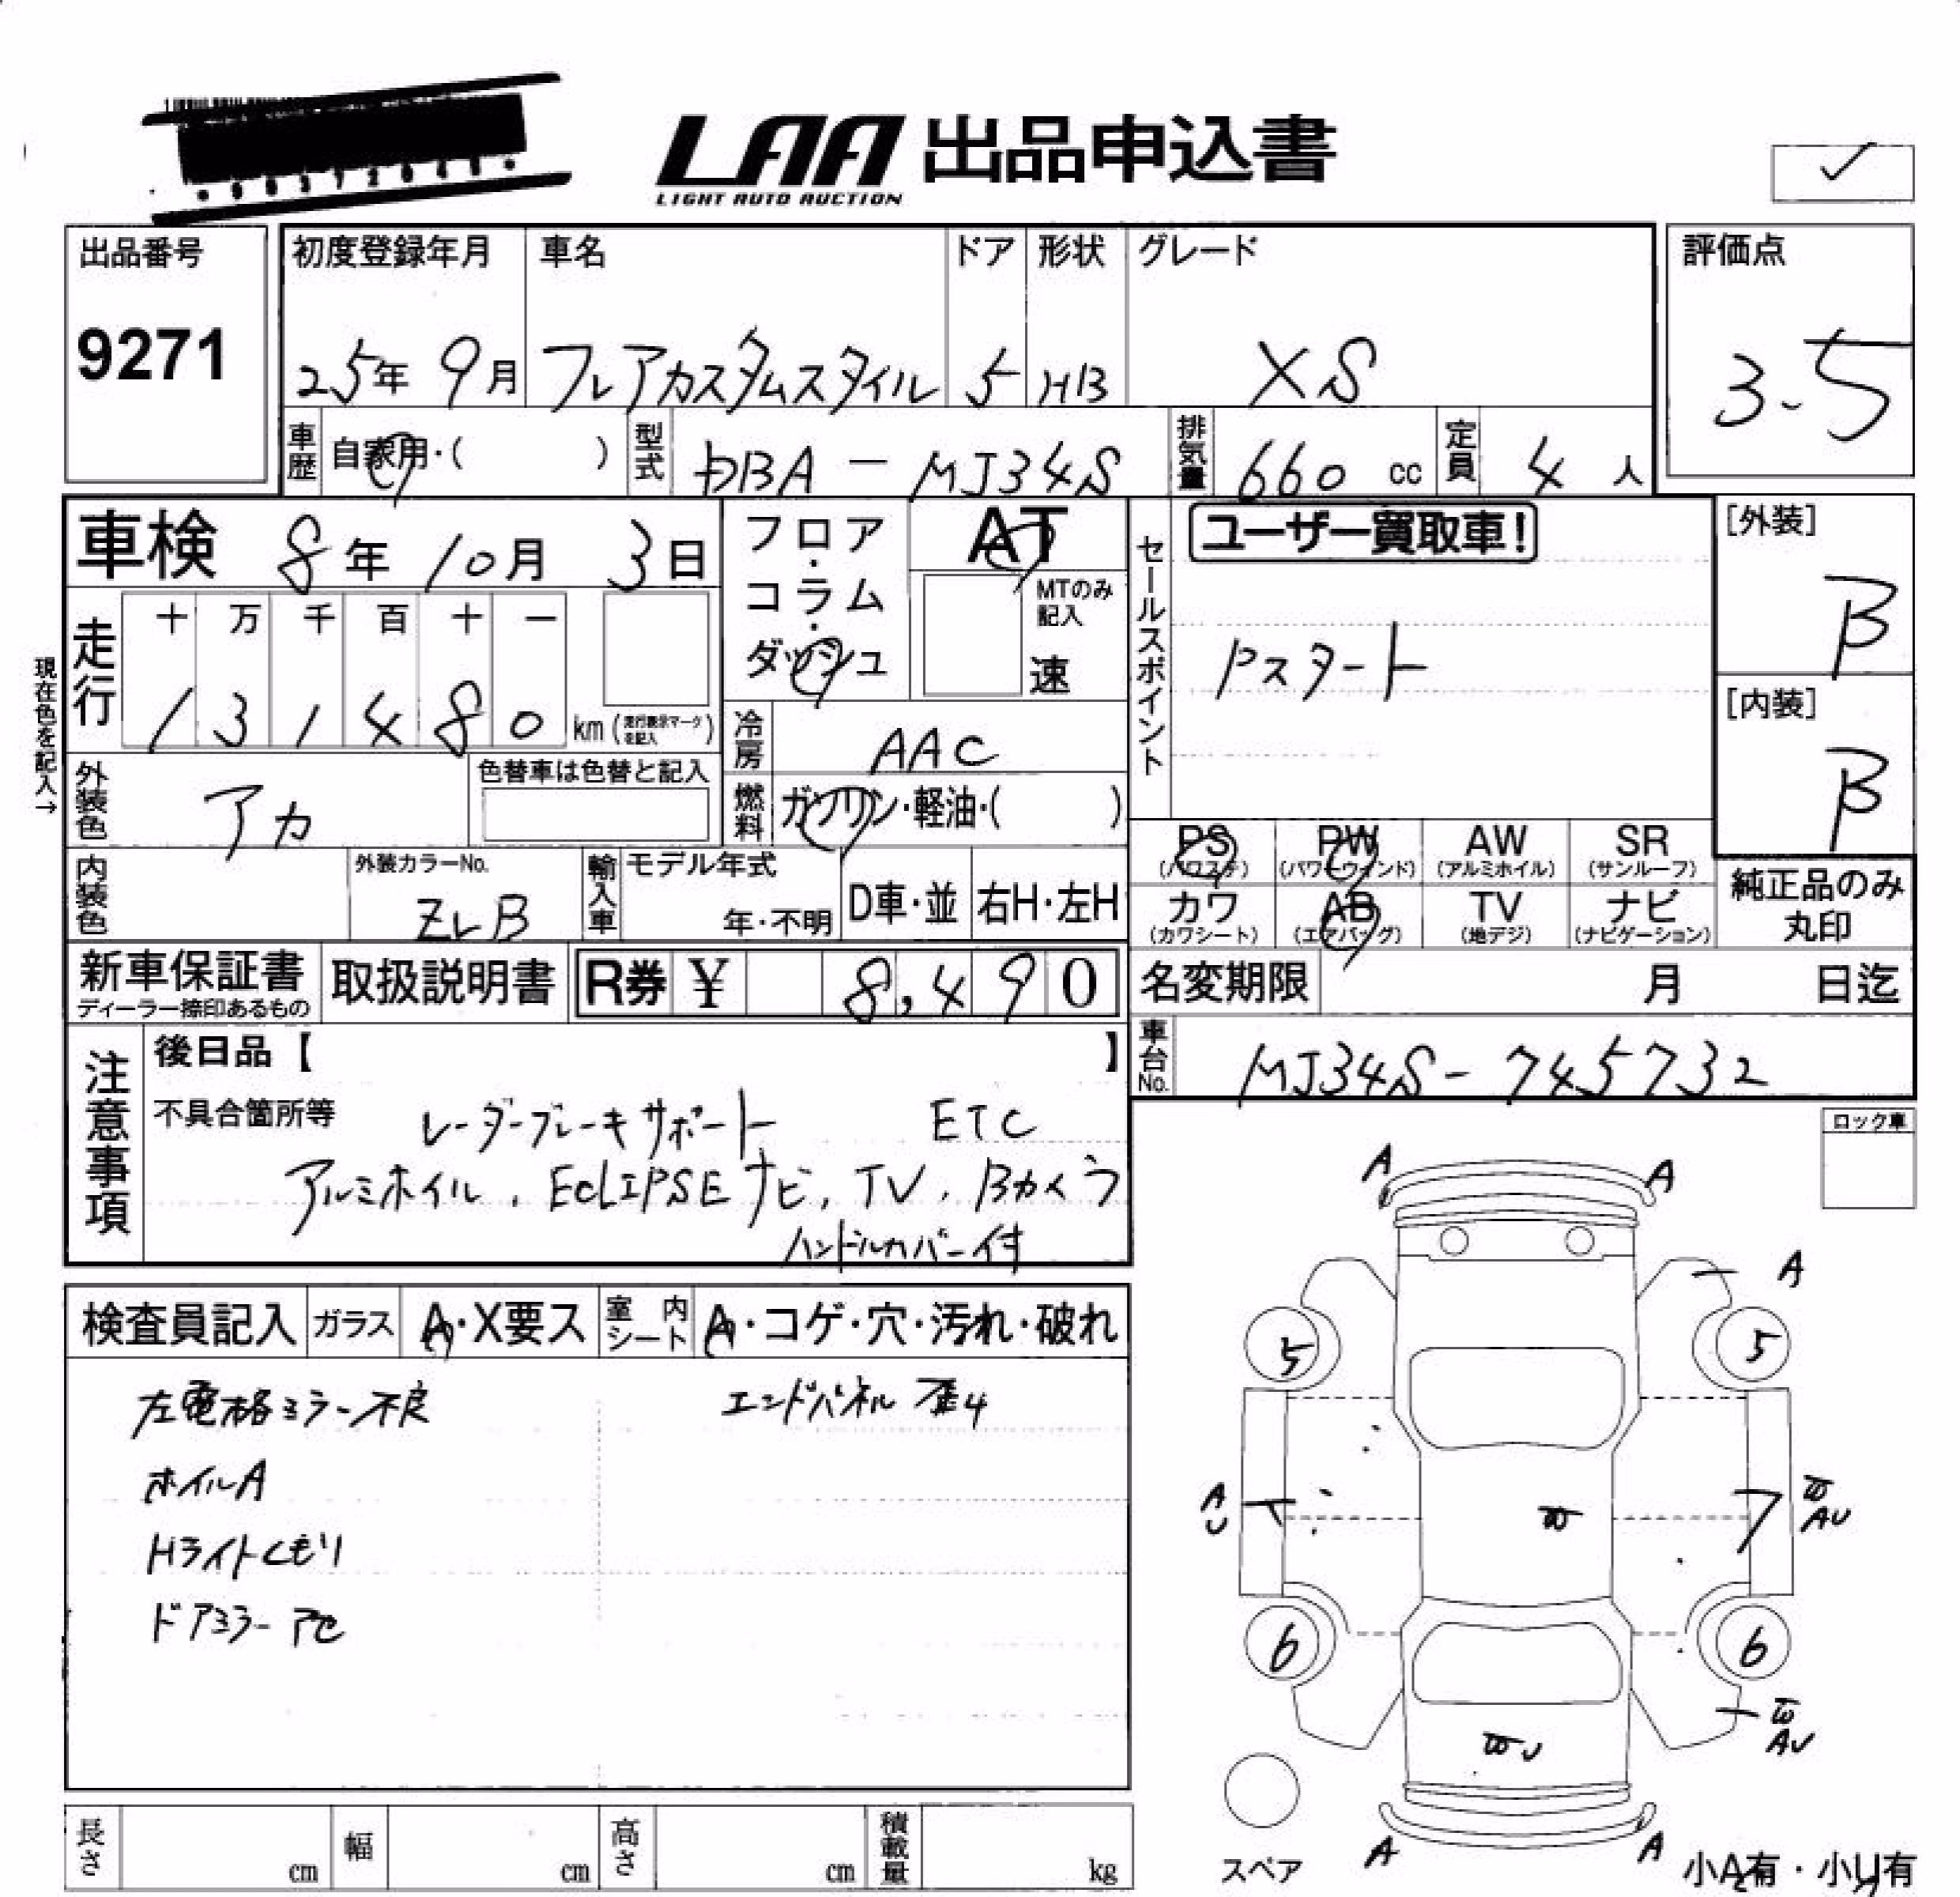 LAA 出品申込書
LIGHT AUTO AUCTION
出品番号
9271
初度登録年月 車名 ドア 形状 グレード
25年 9月 フレアカスタムスタイル 5 HB XS
評価点
3.5
車歴 自家用・( ) 型式 DBA-MJ34S 排気量 660 cc 定員 4 人
車検 8年 10月 3日
フロア・コラム・ダッシュ
AT
MTのみ記入
速
セールスポイント
ユーザー買取車!
Pスタート
[外装]
B
[内装]
B
現在色を記入→
走行 十 万 千 百 十 一
1 3 1 4 8 0 km (走行表示マークを記入)
冷房 AAC
外装色 アカ 色替車は色替と記入
燃料 ガソリン・軽油・( )
内装色 外装カラーNo. ZLB
輸入車 モデル年式 年・不明 D車・並 右H・左H
PS (パワステ) PW (パワーウインド) AW (アルミホイル) SR (サンルーフ)
カワ (カワシート) AB (エアバッグ) TV (地デジ) ナビ (ナビゲーション)
純正品のみ丸印
新車保証書 ディーラー捺印あるもの 取扱説明書 R券 ¥ 8,490
名変期限 月 日迄
車台No. MJ34S-745732
注意事項
後日品【 】
不具合箇所等
レーダーブレーキサポート ETC
アルミホイル, ECLIPSEナビ, TV, Bカメラ
ハンドルカバー付
ロック車
検査員記入 ガラス A・X要ス 室内シート A・コゲ・穴・汚れ・破れ
左電格ミラー不良 エンドパネル歪4
ホイルA
Hライトくもり
ドアミラー
A A
A
5 5
A
U
AU
6 6
AU
A A
スペア
小A有・小U有
長さ cm 幅 cm 高さ cm 積載量 kg